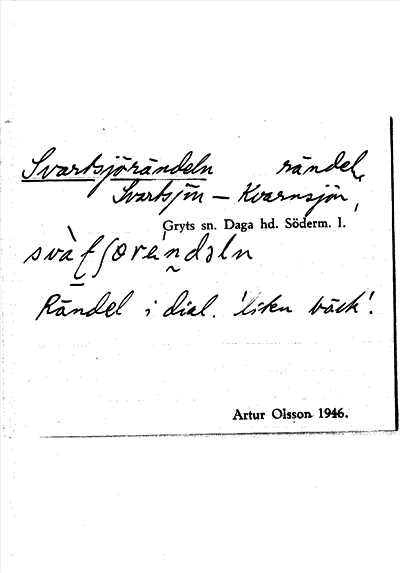 Svartsjörändeln rändel,
Svartsjön – Kvarnsjön,
Gryts sn. Daga hd. Söderm. l.
Rändel i dial. 'liten bäck'.
Artur Olsson 1946.